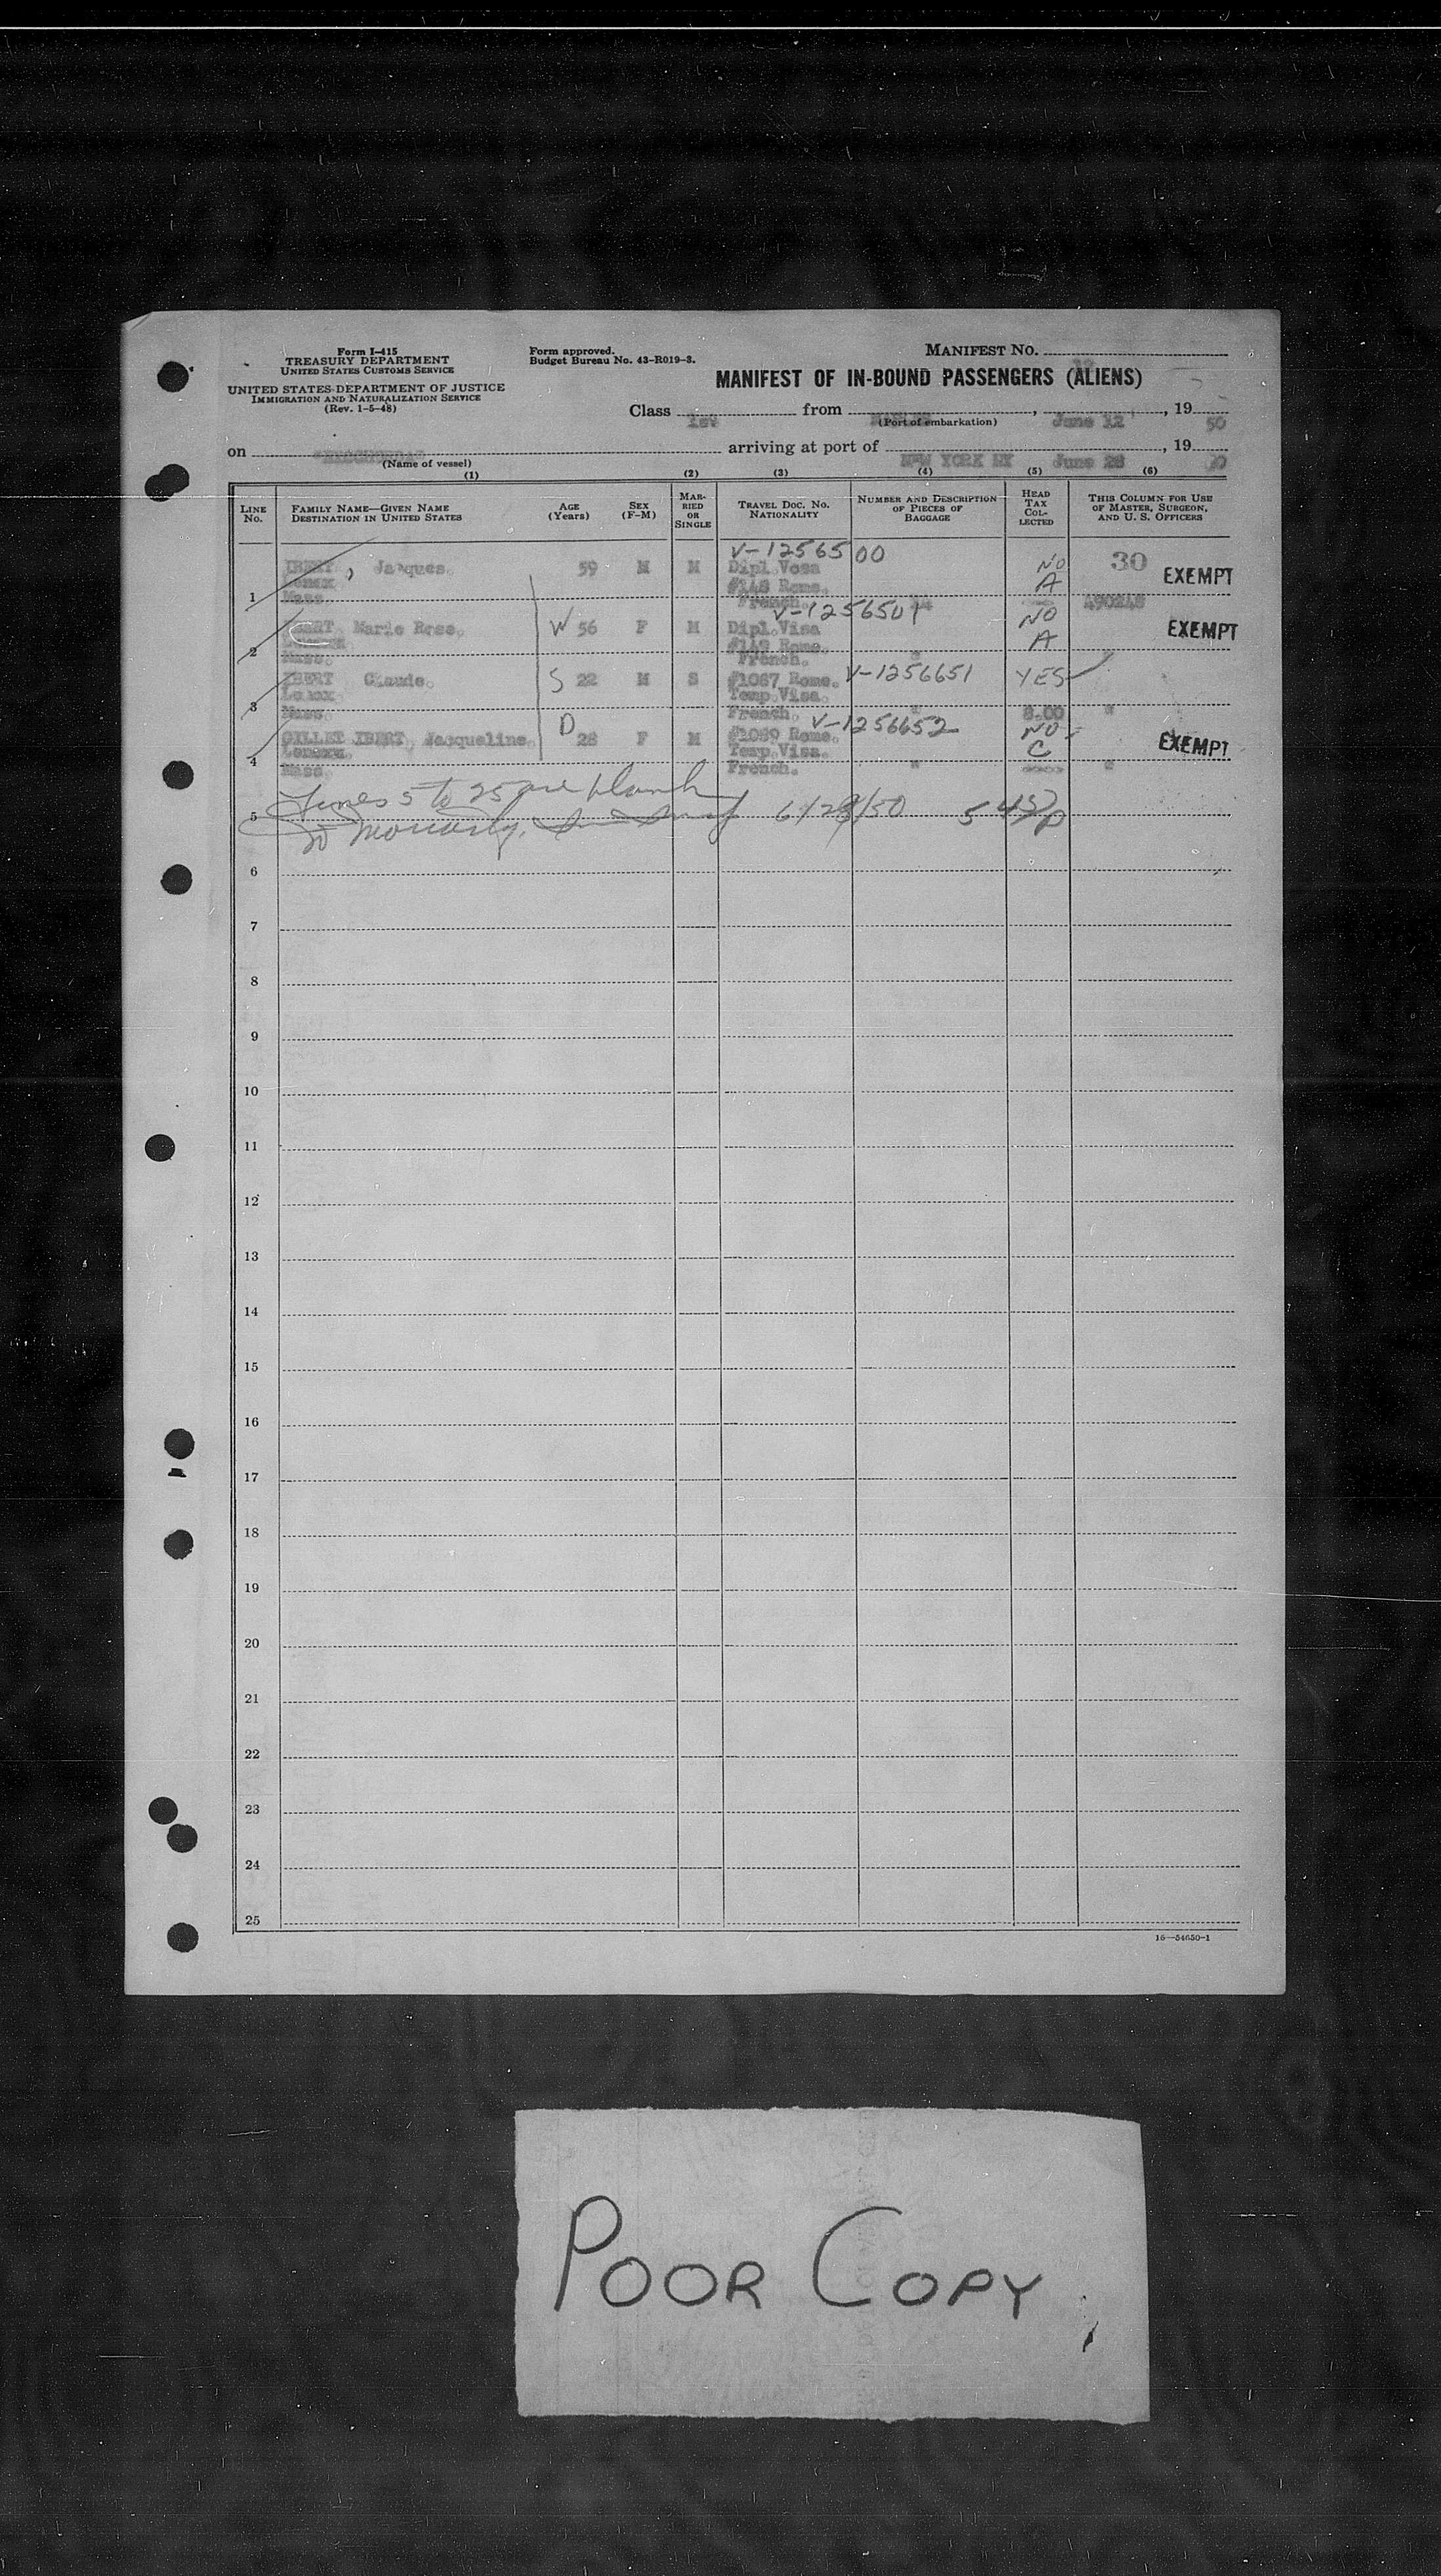 Form I-415
TREASURY DEPARTMENT
UNITED STATES CUSTOMS SERVICE
UNITED STATES DEPARTMENT OF JUSTICE
IMMIGRATION AND NATURALIZATION SERVICE
(Rev. 1-5-48)
Form approved.
Budget Bureau No. 43-R019-3.
MANIFEST No.
MANIFEST OF IN-BOUND PASSENGERS (ALIENS)
Class 1st from , June 12, 1950
(Port of embarkation)
on arriving at port of NEW YORK NY June 28, 19
(Name of vessel)
(1) (2) (3) (4) (5) (6)
LINE No. FAMILY NAME—GIVEN NAME DESTINATION IN UNITED STATES AGE (Years) SEX (F-M) MARRIED OR SINGLE TRAVEL DOC. No. NATIONALITY NUMBER AND DESCRIPTION OF PIECES OF BAGGAGE HEAD TAX COLLECTED THIS COLUMN FOR USE OF MASTER, SURGEON, AND U. S. OFFICERS
V-1256500
IBERT, Jacques. 59 M M Dipl.Vosa NO 30 EXEMPT
Lenox #148 Rome. A
1 Mass. French.
V-1256501
IBERT Marie Rose. W 56 F M Dipl.Visa NO EXEMPT
#149 Rome. A
2 Mass. French. "
IBERT Claude. S 22 M S #1067 Rome. V-1256651 YES
Lenox. Temp.Visa.
3 Mass. French. " 8.00 "
V-1256652
GILLET IBERT, Jacqueline. D 28 F M #1089 Rome. NO EXEMPT
Temp.Visa. C
4 Mass. French. " "
Lines 5 to 25 are blank
5 6/28/50 5 45 p
6
7
8
9
10
11
12
13
14
15
16
17
18
19
20
21
22
23
24
25
16—54650-1
POOR COPY